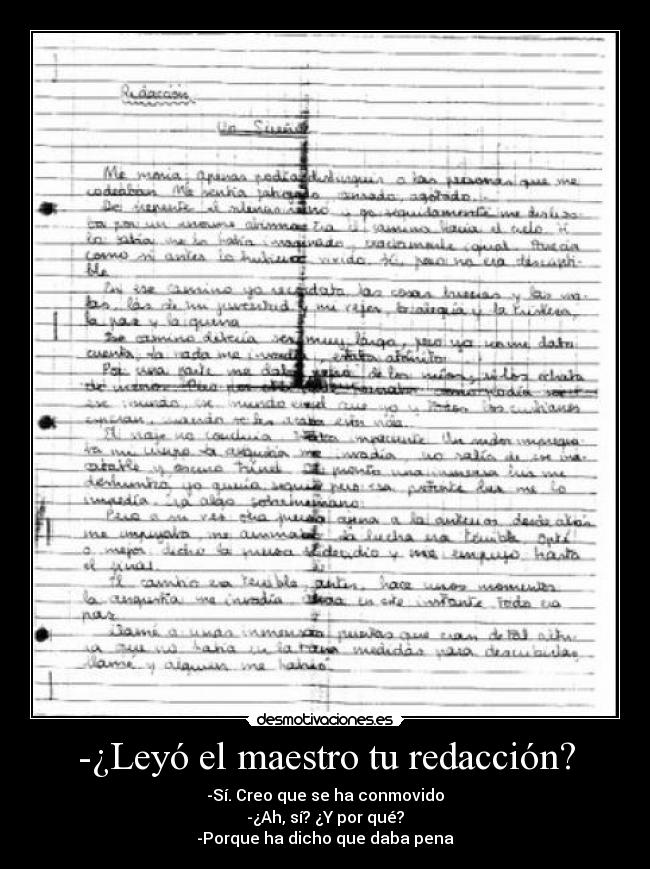 Redacción
Un Sueño
Me moría; apenas podía distinguir a las personas que me
codeaban. Me sentía cansado, agotado.
De repente el silencio y yo seguidamente me
ba por un enorme abismo Era el camino hacia el cielo. Sí
lo sabía me lo había imaginado, exactamente igual. Parecía
como si antes lo hubiera vivido. Sí, pero no era
ble.
En ese camino yo recordaba las cosas buenas y las ma-
las, las de mi juventud y mi vejez, la alegría y la tristeza,
la paz y la guerra
Ese camino debería ser muy largo, pero yo no me daba
cuenta, la nada me invadía, estaba atónito.
Por una parte me daba pena de los míos, si los echaba
de menos. Pero por
ese mundo, ese mundo en el que yo y todos los cristianos
esperan, cuando se les acaba esta vida.
El viaje no concluía. Estaba impaciente. Un sudor impregna-
ba mi cuerpo la angustia me invadía, no salía de ese
y oscuro túnel. De pronto una inmensa luz me
deslumbró yo quería seguir pero esa potente luz me lo
impedía. Era algo sobrehumano.
Pero a su vez otra fuerza ajena a la anterior, desde atrás
me empujaba, me animaba. La lucha era terrible. Opté
o mejor dicho la fuerza decidió y me empujó hasta
el final.
El cambio era terrible, antes, hace unos momentos
la angustia me invadía, ahora en este instante todo era
paz.
Llamé a unas inmensas puertas que eran de tal altu-
ra que no había en la tierra medidas para describirlas,
llamé y alguien me habló.
desmotivaciones.es
-¿Leyó el maestro tu redacción?
-Sí. Creo que se ha conmovido
-¿Ah, sí? ¿Y por qué?
-Porque ha dicho que daba pena